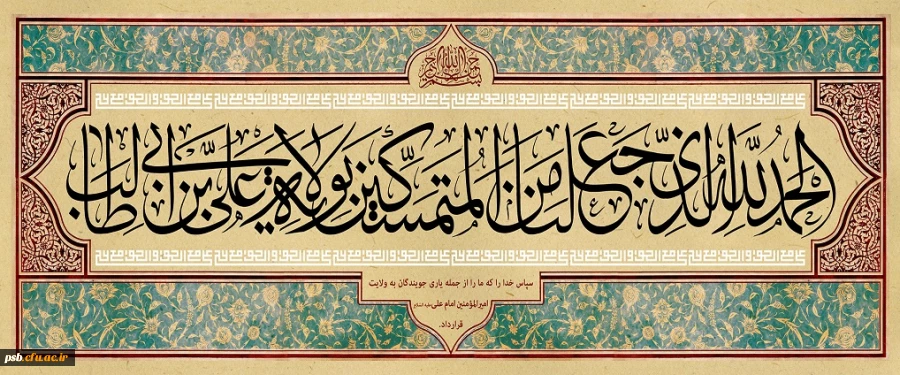 بسم الله الرحمن الرحیم
الحمد لله الذی جعلنا من المتمسکین بولایة علی بن ابی طالب
سپاس خدا را که ما را از جمله یاری جویندگان به ولایت
امیرالمؤمنین امام علی علیه السلام
قرارداد.
psb.cfu.ac.ir